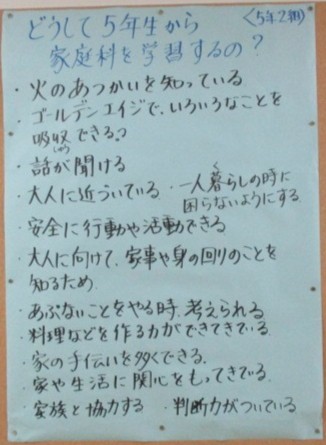 〈5年2組〉
どうして5年生から
家庭科を学習するの？
・火のあつかいを知っている
・ゴールデンエイジで、いろいろなことを
吸収できる。
・話が聞ける
・大人に近づいている ・一人暮らしの時に
困らないようにする
・安全に行動や活動できる
・大人に向けて、家事や身の回りのことを
知るため
・あぶないことをやる時、考えられる
・料理などを作る力ができてきている
・家の手伝いを多くできる。
・家や生活に関心をもってきている
・家族と協力する ・判断力がついている